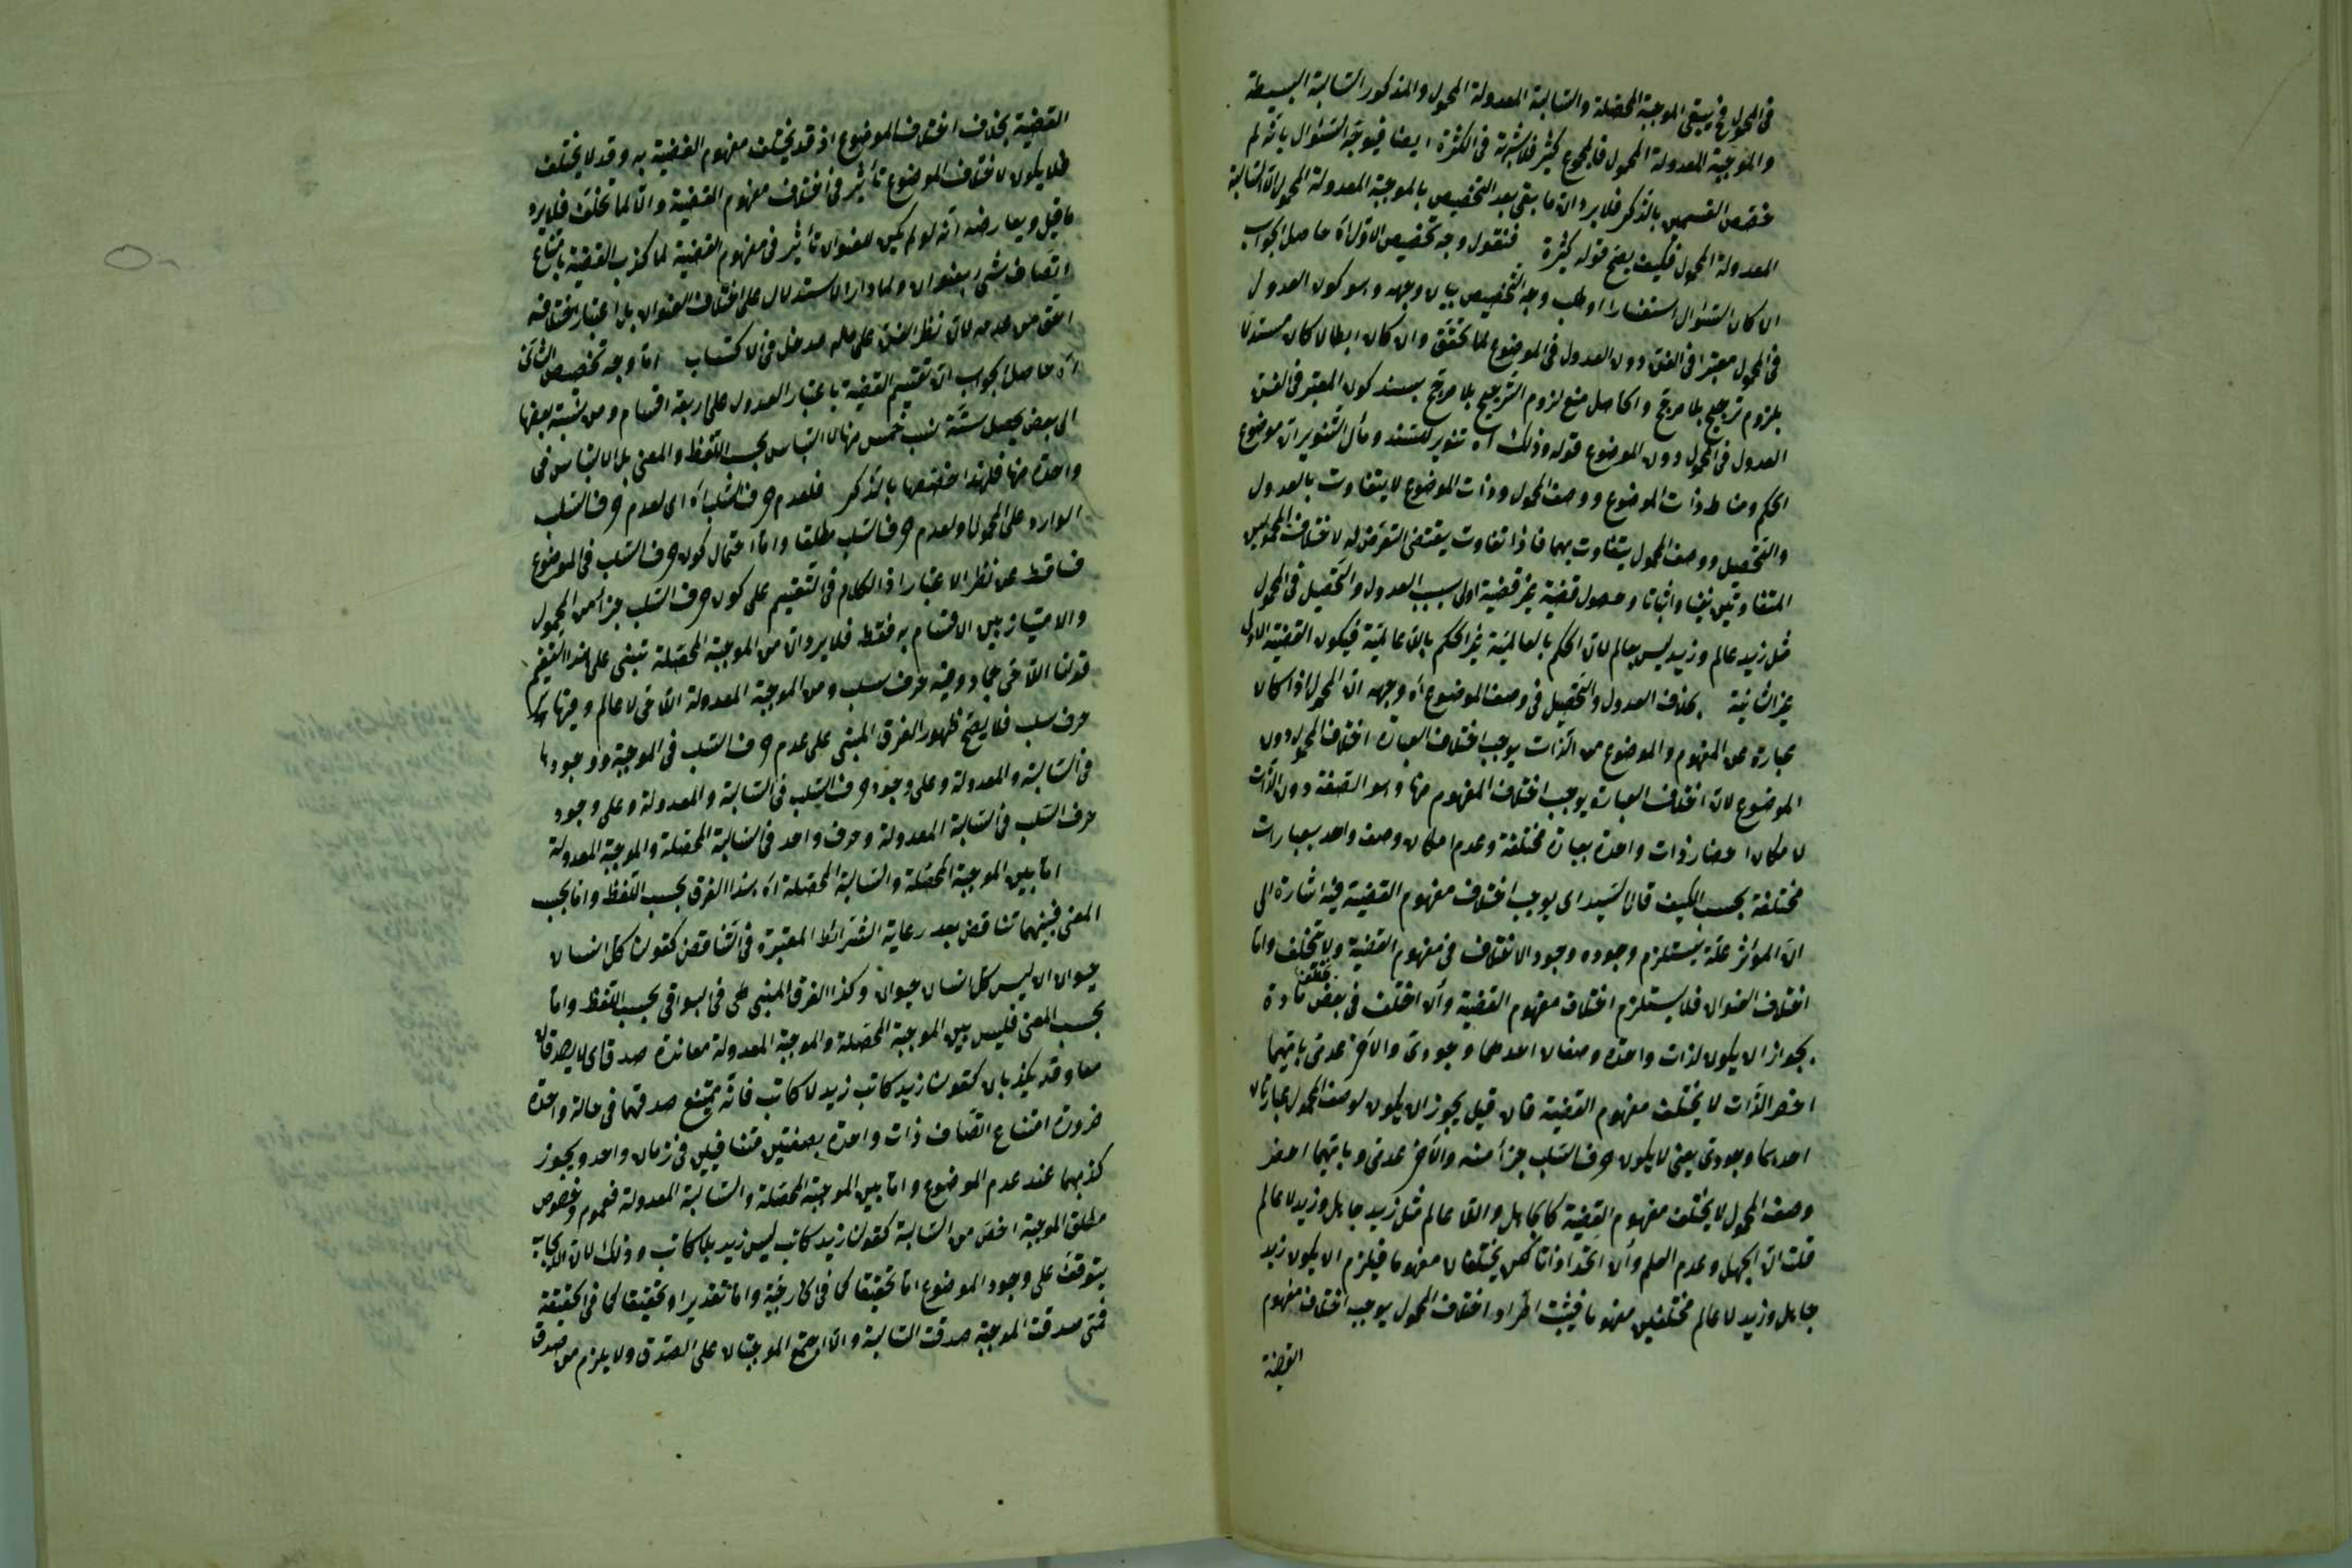 في المحمول فح يبقى الموجبة المحصلة والسالبة المعدولة المحمول والمذكور السالبة البسيطة
والموجبة المعدولة المحمول فالمجموع كثير فلا شبهة في الكثرة ايضا فيتوجه السؤال بانه لم
خصص القسمين بالذكر فلا يرد ان ما بقى بعد التخصيص بالموجبة المعدولة المحمول الا السالبة
المعدولة المحمول فكيف يصح قوله كثيرة فنقول وجه تخصيص الاول اه حاصل الجواب
ان كان السؤال استفسارا او طلب وجه التخصيص بيان وجهه وهو كون العدول
في المحمول معتبرا في الفن دون العدول في الموضوع لما تحقق وان كان ابطالا كان مستدلا
بلزوم ترجيح بلا مرجح والحاصل منع لزوم الترجيح بلا مرجح بسند كون المعتبر في الفن
العدول في المحمول دون الموضوع قوله وذلك اه تنوير للسند ومآل التنوير ان موضوع
الحكم ومناط ذات الموضوع ووصف المحمول وذات الموضوع لا يتفاوت بالعدول
والتحصيل ووصف المحمول يتفاوت بهما فاذا تفاوت يقتضى التعرض له لاختلاف المحمولين
المتفاوتين نفيا واثباتا وحصول قضية غير قضية اولى بسبب العدول والتحصيل في المحمول
مثل زيد عالم وزيد ليس بعالم لان الحكم بالعالمية غير الحكم باللاعالمية فيكون القضية الاولى
غير الثانية بخلاف العدول والتحصيل في وصف الموضوع اه وجهه ان المحمول اذا كان
عبارة عن المفهوم والموضوع من الذات يوجب اختلاف العبارة اختلاف المحمول دون
الموضوع لان اختلاف العبارة يوجب اختلاف المفهوم منها وهو الصفة دون الذات
لامكان احضار ذات واحدة بعبارة مختلفة وعدم امكان وصف واحد بعبارات
مختلفة بحسب الكيف قال السيد اى يوجب اختلاف مفهوم القضية فيه اشارة الى
ان المؤثر علة يستلزم وجوده وجود الاختلاف في مفهوم القضية ولا تختلف واما
اختلاف العنوان فلا يستلزم اختلاف مفهوم القضية وان اختلف في بعض مادة
بجواز ان يكون لذات واحدة وصفان احدهما وجودى والآخر عدمى بايهما
احضر الذات لا يختلف مفهوم القضية فان قيل يجوز ان يكون لوصف المحمول عبارتان
احدهما وجودى يعنى لا يكون حرف السلب جزأ منه والآخر عدمى وبايهما احضر
وصف المحمول لا يختلف مفهوم القضية كالجاهل واللا عالم مثل زيد جاهل وزيد لا عالم
قلت ان الجهل وعدم العلم وان اتحدا ذاتا لكن يختلفان مفهوما فيلزم ان يكون زيد
جاهل وزيد لا عالم مختلفين مفهوما فيثبت اطراد اختلاف المحمول يوجب اختلاف مفهوم
القضية
القضية بخلاف اختلاف الموضوع اذ قد يختلف مفهوم القضية به وقد لا يختلف
فلا يكون لاختلاف الموضوع تأثير في اختلاف مفهوم القضية والا لما تخلف فلا يرد
ما قيل ويعارضه انه لو لم يكن للعنوان تأثير في مفهوم القضية لما كذب القضية بامتناع
اتصاف شىء بعنوان ولما دار الاستدلال على اختلاف العنوان بل اعتبار اختلافه
احق من عدمه لان نظر الفن على ماله مدخل في الاكتساب اما وجه تخصيص الثانى
اه حاصل الجواب ان تقسيم القضية باعتبار العدول على اربعة اقسام ومن نسبة بعضها
الى بعض يحصل ستة نسب خمس منها لا التباس بحسب اللفظ والمعنى بل الالتباس في
واحدة منها فلهذا خصها بالذكر فلعدم حرف السلب اه اى لعدم حرف السلب
الوارد على المحمول او لعدم حرف السلب مطلقا واما احتمال كون حرف السلب في الموضوع
فساقط عن نظر الاعتبار اذ الكلام في التقسيم على كون حرف السلب جزأ من المحمول
والامتياز بين الاقسام به فقط فلا يرد ان من الموجبة المحصلة تبنى على هذا التقسيم
قولنا اللا حى جماد وفيه حرف سلب ومن الموجبة المعدولة اللا حى لا عالم وفيها
حرف سلب فلا يصح ظهور الفرق المبنى على عدم حرف السلب في الموجبة ووجودها
في السالبة والمعدولة وعلى وجود حرف السلب في السالبة والمعدولة وعلى وجود
حرف السلب في السالبة المعدولة وحرف واحد في السالبة المحصلة والموجبة المعدولة
اما بين الموجبة المحصلة والسالبة المحصلة اه هذا الفرق بحسب اللفظ واما بحسب
المعنى فبينهما تناقض بعد رعاية الشرائط المعتبرة في التناقض كقولنا كل انسان
حيوان ان ليس كل انسان حيوان وكذا الفرق المبنى على في البواقى بحسب اللفظ واما
بحسب المعنى فليس بين الموجبة المحصلة والموجبة المعدولة معاندة صدقا اى لا يصدقان
معا وقد يكذبان كقولنا زيد كاتب زيد لا كاتب فانه يمتنع صدقهما في حالة واحدة
ضرورة امتناع اتصاف ذات واحدة بصفتين متنافيين في زمان واحد ويجوز
كذبهما عند عدم الموضوع واما بين الموجبة المحصلة والسالبة المعدولة فعموم وخصوص
مطلق الموجبة اخص من السالبة كقولنا زيد كاتب ليس زيد بلا كاتب وذلك لان الايجاب
يتوقف على وجود الموضوع اما تحقيقا كما في الخارجية واما تقديرا او تحقيقا كما في الحقيقة
فمتى صدقت الموجبة صدقت السالبة والا اجتمع الموجبتان على الصدق ولا يلزم من صدق